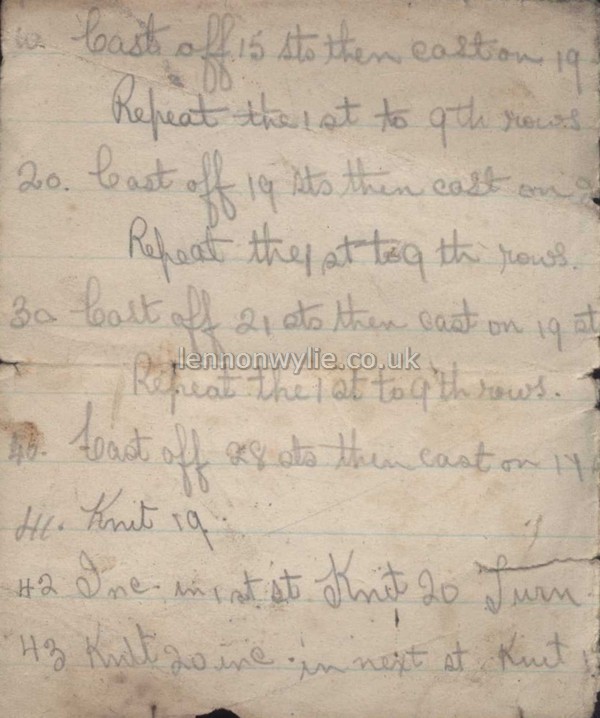 10. Cast off 15 sts then cast on 19
Repeat the 1 st to 9 th rows
20. Cast off 19 sts then cast on
Repeat the 1 st to 9 th rows.
30 Cast off 21 sts then cast on 19 st
lennonwylie.co.uk
Repeat the 1 st to 9 th rows.
40. Cast off 28 sts then cast on
41. Knit 19.
42 Inc. in 1 st st Knit 20 Turn
43 Knit 20 inc. in next st. Knit